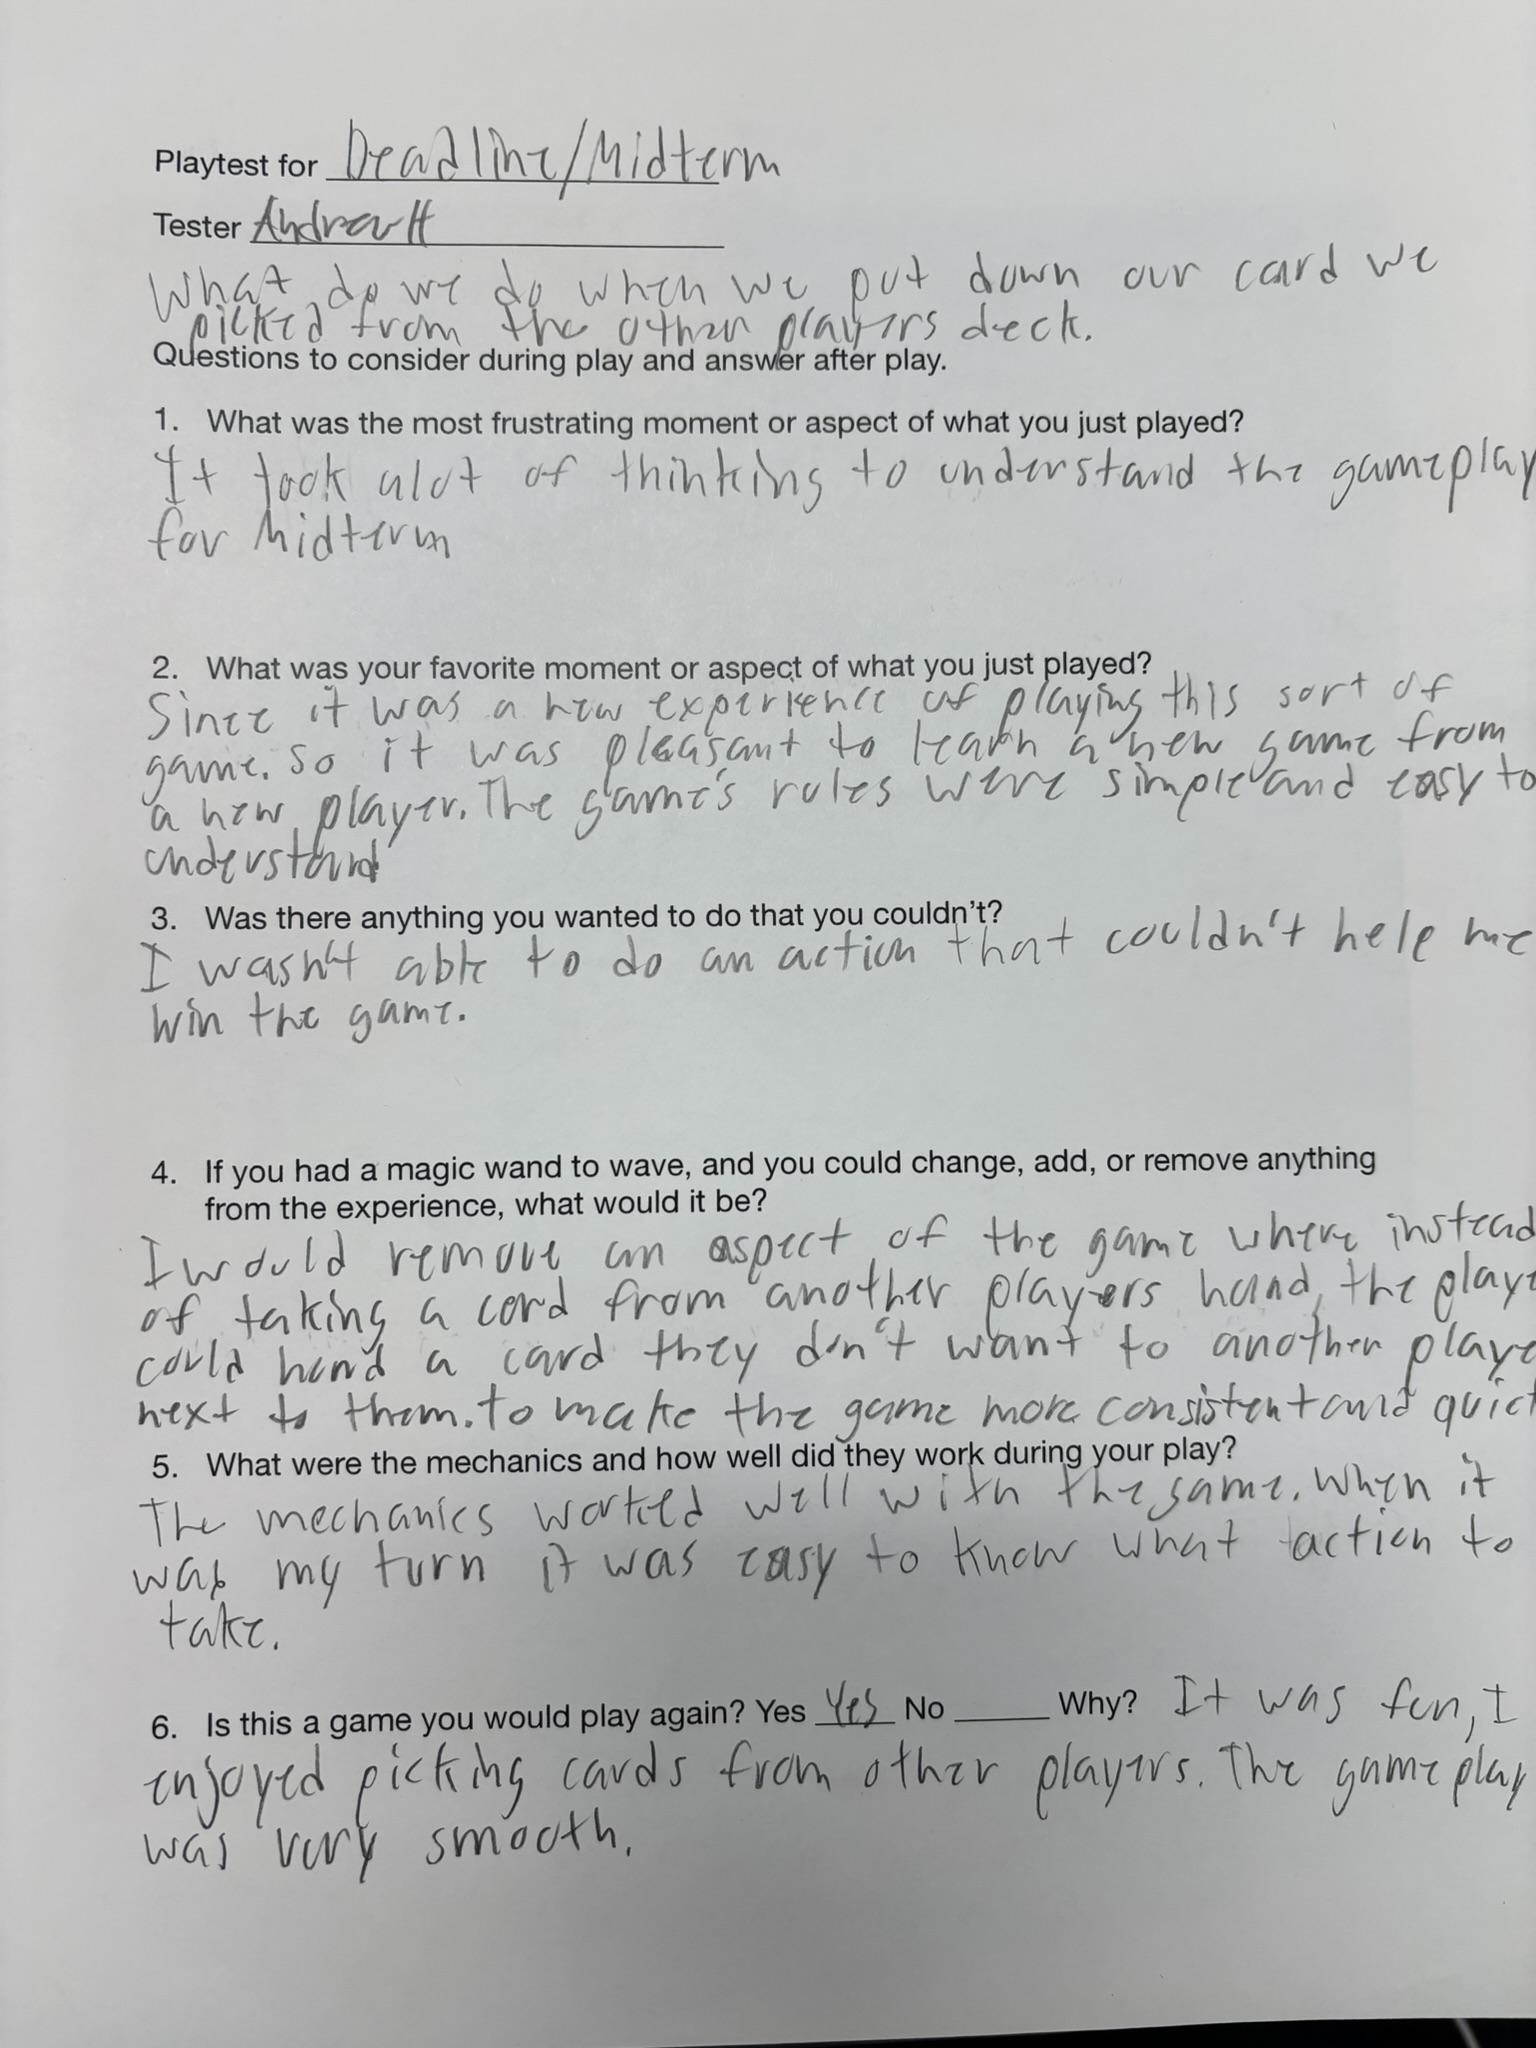 Playtest for Deadline/Midterm
Tester Andrew H
What do we do when we put down our card we
picked from the other players deck.
Questions to consider during play and answer after play.
1. What was the most frustrating moment or aspect of what you just played?
It took alot of thinking to understand the gameplay
for Midterm
2. What was your favorite moment or aspect of what you just played?
Since it was a new experience of playing this sort of
game. So it was pleasant to learn a new game from
a new player. The game's rules were simple and easy to
understand
3. Was there anything you wanted to do that you couldn't?
I wasn't able to do an action that couldn't help me
win the game.
4. If you had a magic wand to wave, and you could change, add, or remove anything
from the experience, what would it be?
I would remove an aspect of the game where instead
of taking a card from another players hand, the playe
could hand a card they don't want to another playe
next to them. to make the game more consistent and quick
5. What were the mechanics and how well did they work during your play?
The mechanics worked well with the game. When it
was my turn it was easy to know what action to
take.
6. Is this a game you would play again? Yes Yes No _____ Why? It was fun, I
enjoyed picking cards from other players. The gameplay
was very smooth.